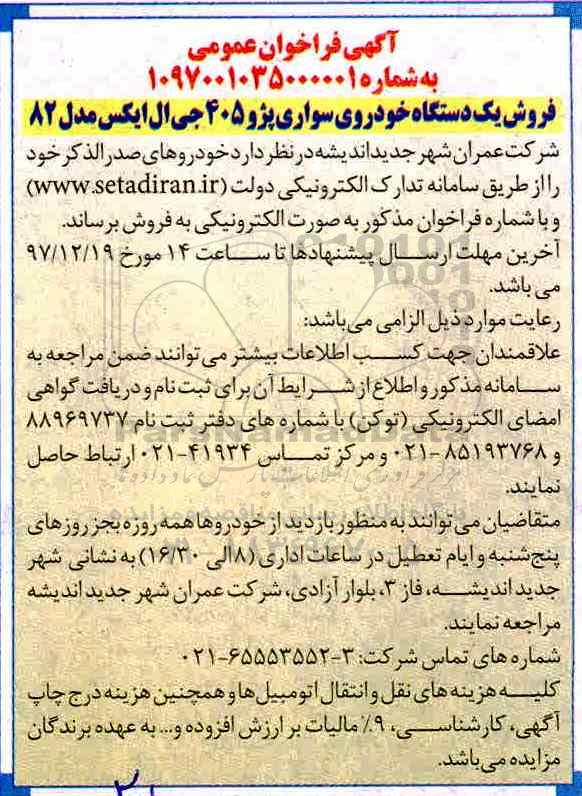 آگهی فراخوان عمومی
به شماره ۱۰۹۷۰۰۱۰۳۵۰۰۰۰۰۱
فروش یک دستگاه خودروی سواری پژو ۴۰۵ جی ال ایکس مدل ۸۲
شرکت عمران شهر جدید اندیشه در نظر دارد خودروهای صدر الذکر خود
را از طریق سامانه تدارک الکترونیکی دولت (www.setadiran.ir)
و با شماره فراخوان مذکور به صورت الکترونیکی به فروش برساند.
آخرین مهلت ارسال پیشنهادها تا ساعت ۱۴ مورخ ۹۷/۱۲/۱۹
می باشد.
رعایت موارد ذیل الزامی می‌باشد:
علاقمندان جهت کسب اطلاعات بیشتر می توانند ضمن مراجعه به
سامانه مذکور و اطلاع از شرایط آن برای ثبت نام و دریافت گواهی
امضای الکترونیکی (توکن) با شماره های دفتر ثبت نام ۸۸۹۶۹۷۳۷
و ۸۵۱۹۳۷۶۸-۰۲۱ و مرکز تماس ۴۱۹۳۴-۰۲۱ ارتباط حاصل
نمایند.
متقاضیان می توانند به منظور بازدید از خودروها همه روزه بجز روزهای
پنج‌شنبه و ایام تعطیل در ساعات اداری (۸ الی ۱۶/۳۰) به نشانی شهر
جدید اندیشه، فاز ۳، بلوار آزادی، شرکت عمران شهر جدید اندیشه
مراجعه نمایند.
شماره های تماس شرکت: ۳-۶۵۵۵۳۵۵۲-۰۲۱
کلیه هزینه های نقل و انتقال اتومبیل ها و همچنین هزینه درج چاپ
آگهی، کارشناسی، ۹٪ مالیات بر ارزش افزوده و... به عهده برندگان
مزایده می‌باشد.